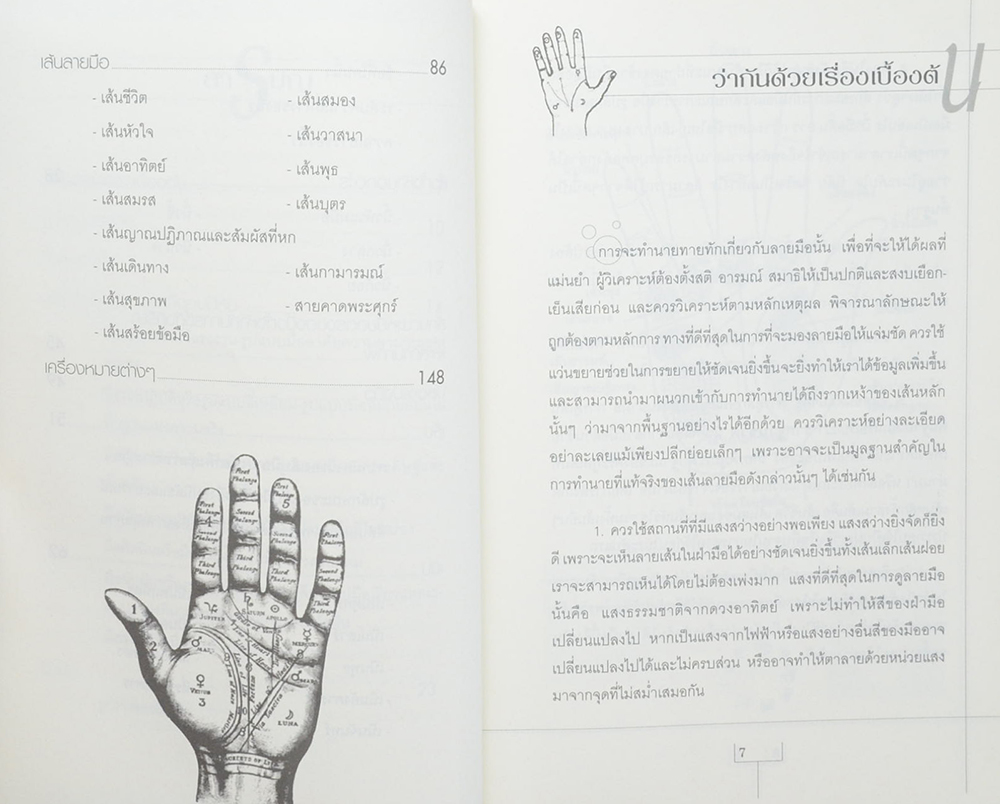 เส้นลายมือ 86
- เส้นชีวิต - เส้นสมอง
- เส้นหัวใจ - เส้นวาสนา
- เส้นอาทิตย์ - เส้นพุธ
- เส้นสมรส - เส้นบุตร
- เส้นญาณปฏิภาณและสัมผัสที่หก
- เส้นเดินทาง - เส้นกามารมณ์
- เส้นสุขภาพ - สายคาดพระศุกร์
- เส้นสร้อยข้อมือ
เครื่องหมายต่างๆ 148
First Phalange
First Phalange
First Phalange
First Phalange
4
5
Second Phalange
Second Phalange
Second Phalange
Second Phalange
Third Phalange
Third Phalange
Third Phalange
Third Phalange
1
2
♃ JUPITER
♄ SATURN
☉ APOLLO
☿ MERCURY
♂ MARS
♂ MARS
♀
VENUS
3
☽
LUNA
Line of Heart
Line of Life
10
ว่ากันด้วยเรื่องเบื้องต้น
การจะทำนายทายทักเกี่ยวกับลายมือนั้น เพื่อที่จะให้ได้ผลที่
แม่นยำ ผู้วิเคราะห์ต้องตั้งสติ อารมณ์ สมาธิให้เป็นปกติและสงบเยือก-
เย็นเสียก่อน และควรวิเคราะห์ตามหลักเหตุผล พิจารณาลักษณะให้
ถูกต้องตามหลักการ ทางที่ดีที่สุดในการที่จะมองลายมือให้แจ่มชัด ควรใช้
แว่นขยายช่วยในการขยายให้ชัดเจนยิ่งขึ้นจะยิ่งทำให้เราได้ข้อมูลเพิ่มขึ้น
และสามารถนำมาผนวกเข้ากับการทำนายได้ถึงรากเหง้าของเส้นหลัก
นั้นๆ ว่ามาจากพื้นฐานอย่างไรได้อีกด้วย ควรวิเคราะห์อย่างละเอียด
อย่าละเลยแม้เพียงปลีกย่อยเล็กๆ เพราะอาจจะเป็นมูลฐานสำคัญใน
การทำนายที่แท้จริงของเส้นลายมือดังกล่าวนั้นๆ ได้เช่นกัน
1. ควรใช้สถานที่ที่มีแสงสว่างอย่างพอเพียง แสงสว่างยิ่งจัดก็ยิ่ง
ดี เพราะจะเห็นลายเส้นในฝ่ามือได้อย่างชัดเจนยิ่งขึ้นทั้งเส้นเล็กเส้นฝอย
เราจะสามารถเห็นได้โดยไม่ต้องเพ่งมาก แสงที่ดีที่สุดในการดูลายมือ
นั้นคือ แสงธรรมชาติจากดวงอาทิตย์ เพราะไม่ทำให้สีของฝ่ามือ
เปลี่ยนแปลงไป หากเป็นแสงจากไฟฟ้าหรือแสงอย่างอื่นสีของมืออาจ
เปลี่ยนแปลงไปได้และไม่ครบส่วน หรืออาจทำให้ตาลายด้วยหน่วยแสง
มาจากจุดที่ไม่สม่ำเสมอกัน
7